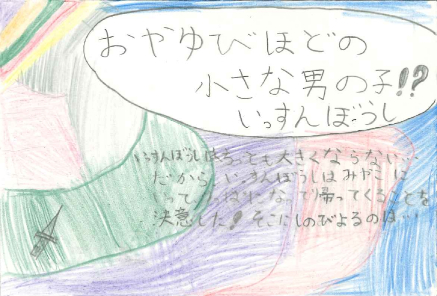 おやゆびほどの
小さな男の子!!?
いっすんぼうし
いっすんぼうしはちっとも大きくならない…
だから いっすんぼうしはみやこに
いって りっぱになって帰ってくることを
決意した!そこにしのびよるのは…